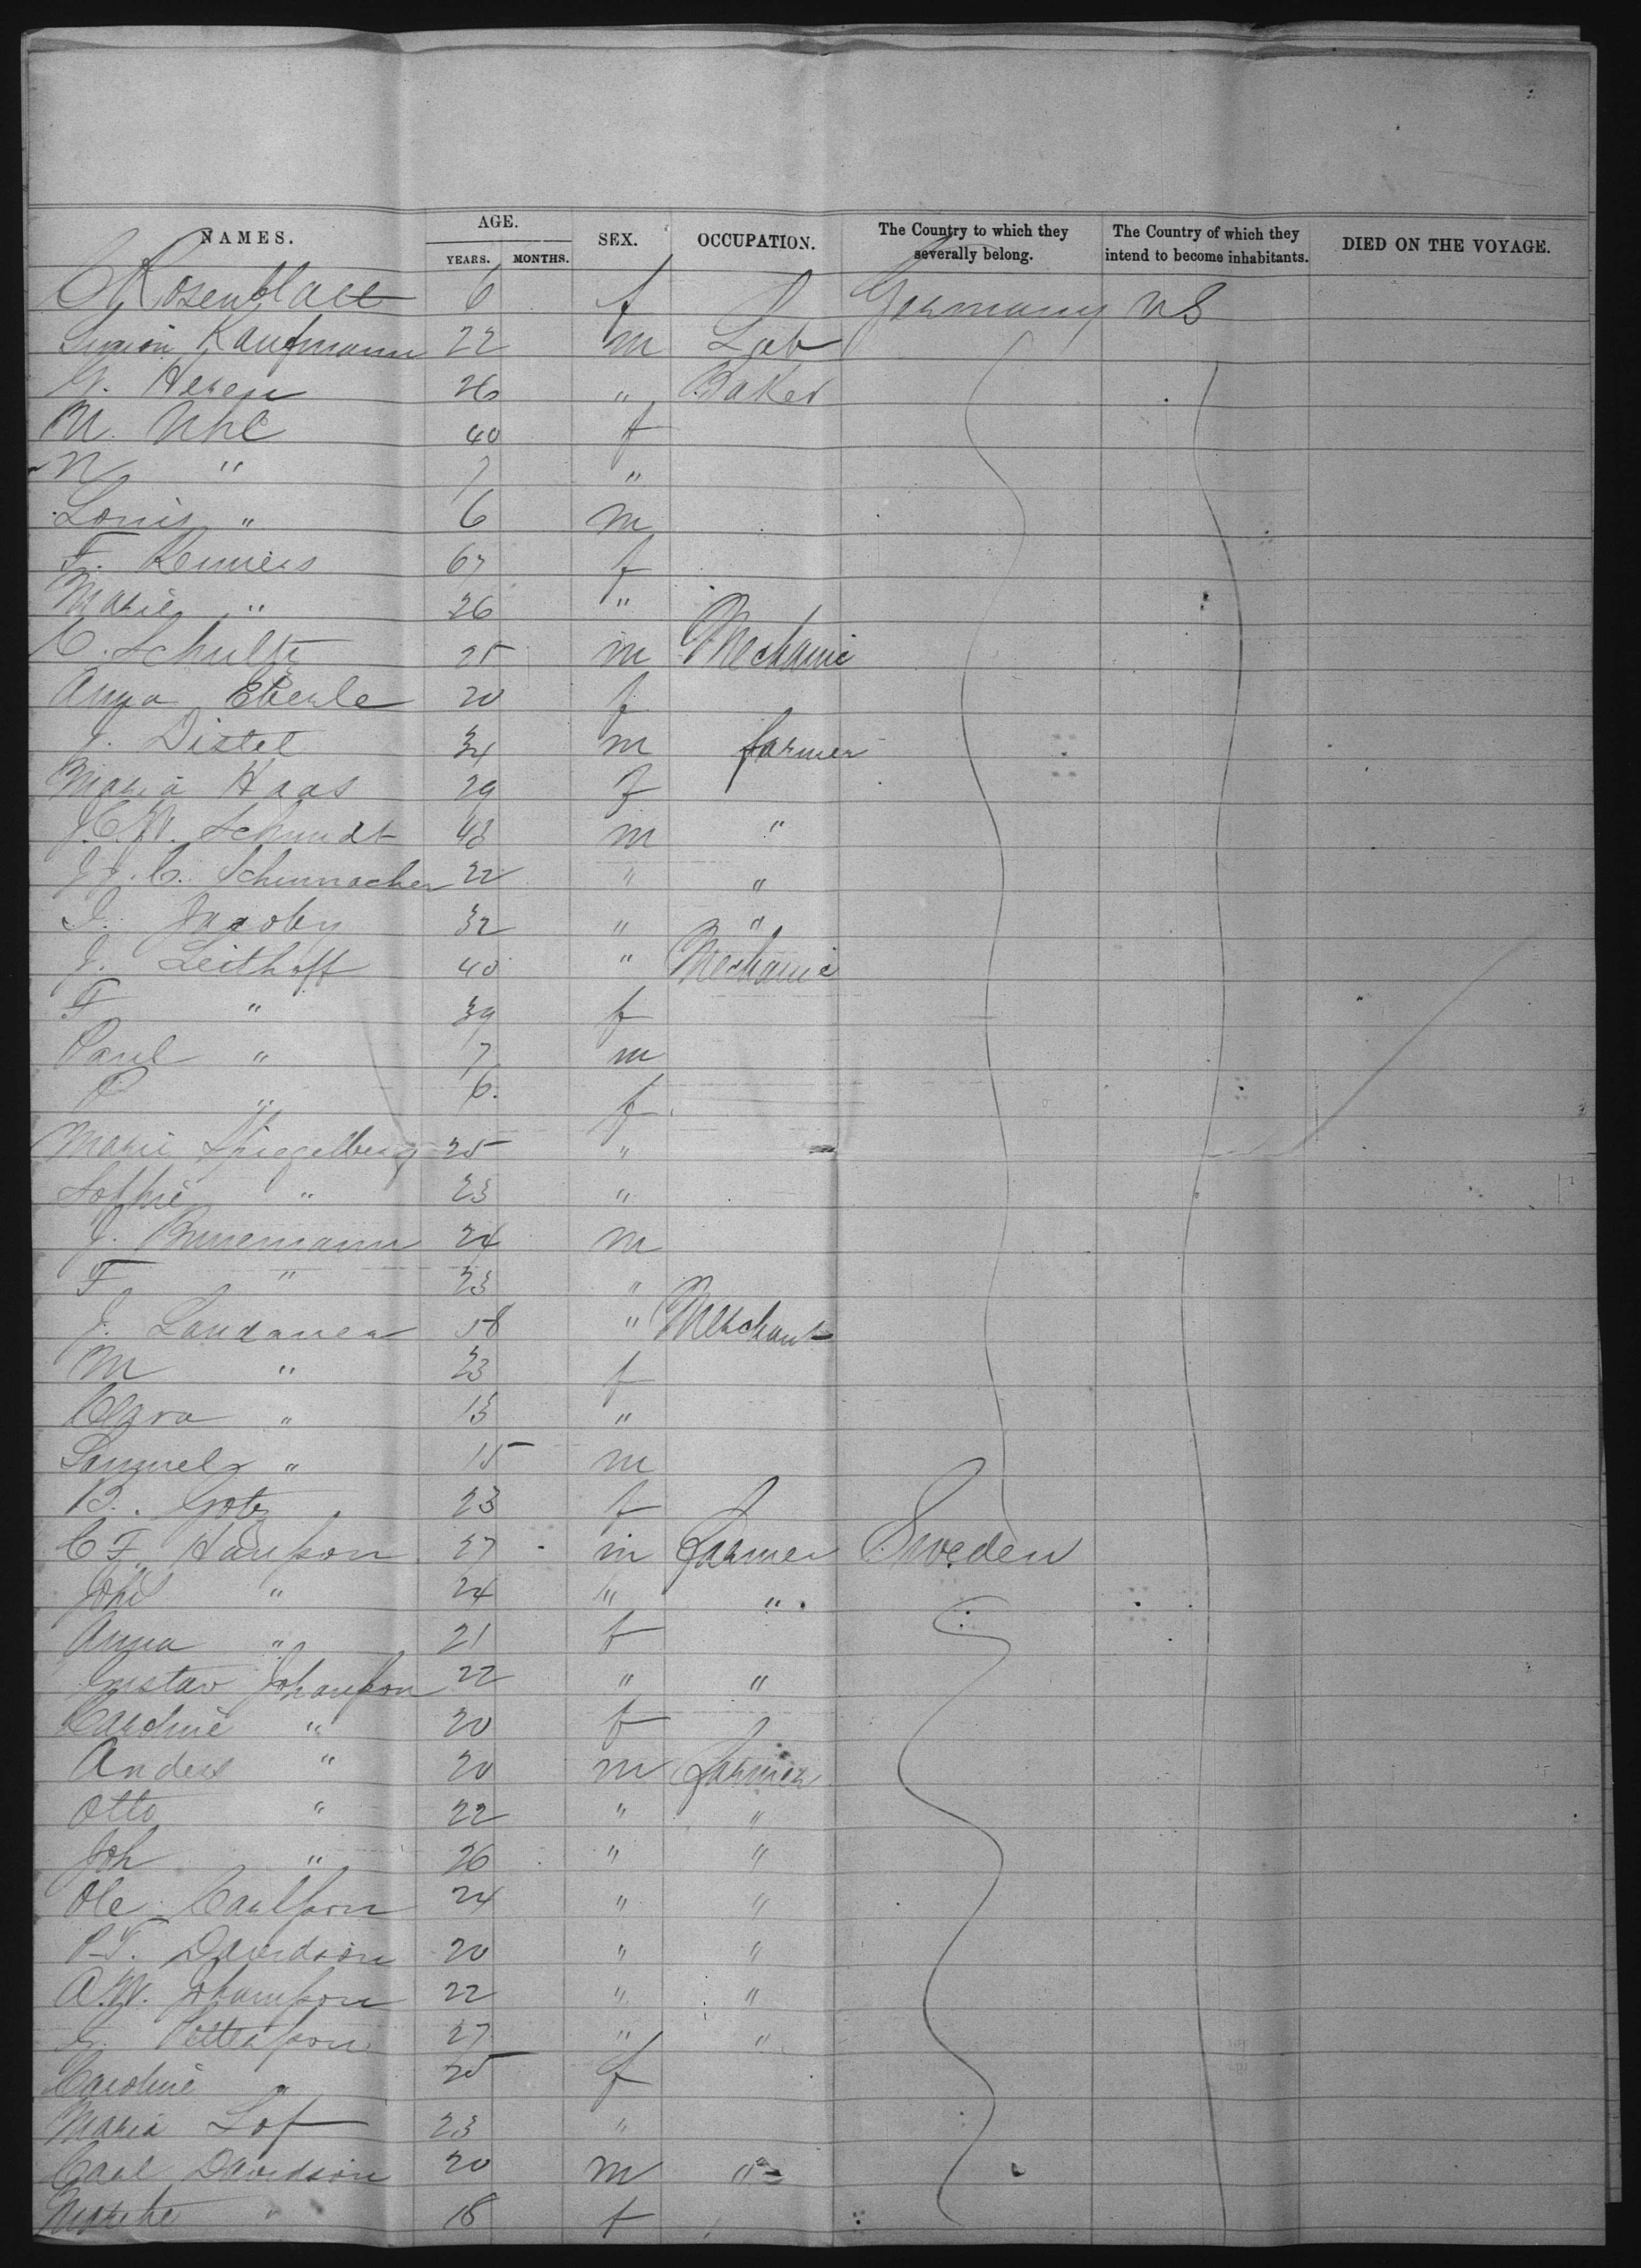 NAMES. AGE. YEARS. MONTHS. SEX. OCCUPATION. The Country to which they severally belong. The Country of which they intend to become inhabitants. DIED ON THE VOYAGE.
C Rosenblatt 6 f Germany US
Simon Kaufmann 22 m Lab
G. 26 " Baker
M. Uhl 40 f
N " 7 "
Louis " 6 m
F. Remiers 67 f
Marie " 26 "
C. Schultz 25 m Mechanic
Anna Eberle 20 f
J. Distel 34 m farmer
Maria Haas 29 f
J.C.W. Schmidt 48 m "
J.J.C. Schumacher 22 " "
I. Jacoby 32 " "
J. Leithoff 40 " Mechanic
F " 39 f
Paul " 7 m
P " 6. f
Marie Spiegelberg 25 "
Sophie " 23 "
J. Brunemann 24 m
F " 23 "
J. Landauer 58 " Merchant
M " 23 f
Clara " 13 "
Samuel " 15 m
B. Gotz 23 f
C F. Hanson 27 m Farmer Sweden
Joh " 24 " "
Anna " 21 f
Gustav Johanson 22 " "
Caroline " 20 f
Anders " 20 m Farmer
Otto " 22 " "
Joh " 26 " "
Ole Carlson 24 " "
P.F. Davidson 20 " "
A.W. Johanson 22 " "
G. Petterson 27 " "
Caroline " 25 f
Maria Lof 23 "
Carl Davidson 20 m "
" 18 f